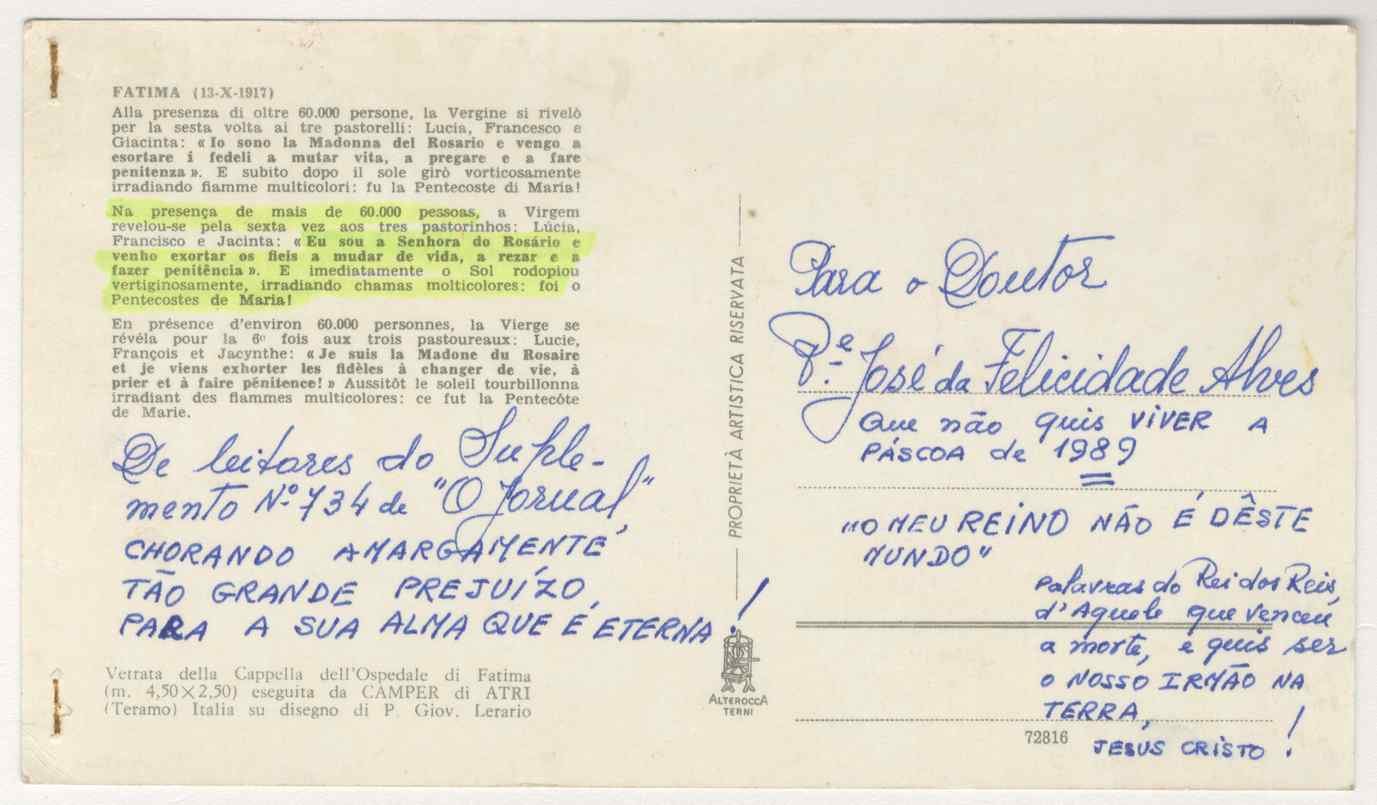 FATIMA (13-X-1917)
Alla presenza di oltre 60.000 persone, la Vergine si rivelò
per la sesta volta ai tre pastorelli: Lucia, Francesco e
Giacinta: « Io sono la Madonna del Rosario e vengo a
esortare i fedeli a mutar vita, a pregare e a fare
penitenza ». E subito dopo il sole girò vorticosamente
irradiando fiamme multicolori: fu la Pentecoste di Maria!
Na presença de mais de 60.000 pessoas, a Virgem
revelou-se pela sexta vez aos tres pastorinhos: Lúcia,
Francisco e Jacinta: « Eu sou a Senhora do Rosário e
venho exortar os fieis a mudar de vida, a rezar e a
fazer penitência ». E imediatamente o Sol rodopiou
vertiginosamente, irradiando chamas molticolores: foi o
Pentecostes de Maria!
En présence d'environ 60.000 personnes, la Vierge se
révéla pour la 6e fois aux trois pastoureaux: Lucie,
François et Jacynthe: « Je suis la Madone du Rosaire
et je viens exhorter les fidèles à changer de vie, à
prier et à faire pénitence! » Aussitôt le soleil tourbillonna
irradiant des flammes multicolores: ce fut la Pentecôte
de Marie.
De leitores do Suple-
mento Nº 734 de "O Jornal",
CHORANDO AMARGAMENTE
TÃO GRANDE PREJUÍZO,
PARA A SUA ALMA QUE É ETERNA!
Vetrata della Cappella dell'Ospedale di Fatima
(m. 4,50×2,50) eseguita da CAMPER di ATRI
(Teramo) Italia su disegno di P. Giov. Lerario
PROPRIETÀ ARTISTICA RISERVATA
ALTEROCCA
TERNI
Para o Doutor
P.e José da Felicidade Alves
Que não quis VIVER A
PÁSCOA de 1989
"O MEU REINO NÃO É DÊSTE
MUNDO"
Palavras do Rei dos Reis,
d'Aquele que venceu
a morte, e quis ser
o NOSSO IRMÃO NA
TERRA,
JESUS CRISTO!
72816